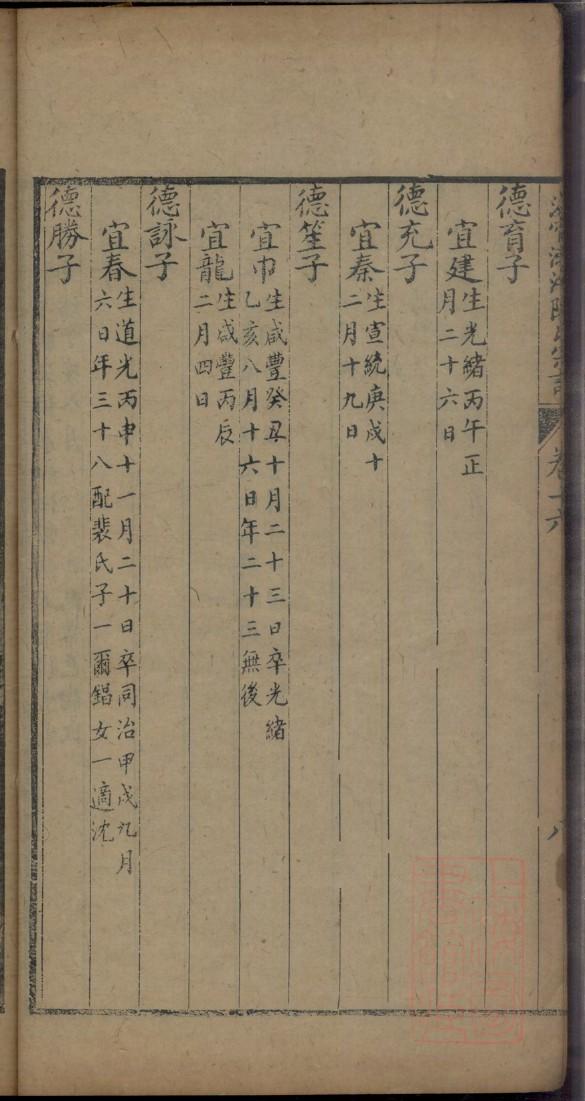 陳氏宗譜
卷十六
八
德育子
宜建生光緒丙午正
月二十六日
德充子
宜秦生宣統庚戌十
二月十九日
德笙子
宜巾生咸豐癸丑十月二十三日卒光緒
乙亥八月十六日年二十三無後
宜龍生咸豐丙辰
二月四日
德詠子
宜春生道光丙申十一月二十日卒同治甲戌九月
六日年三十八配裴氏子一爾錩女一適沈
德勝子